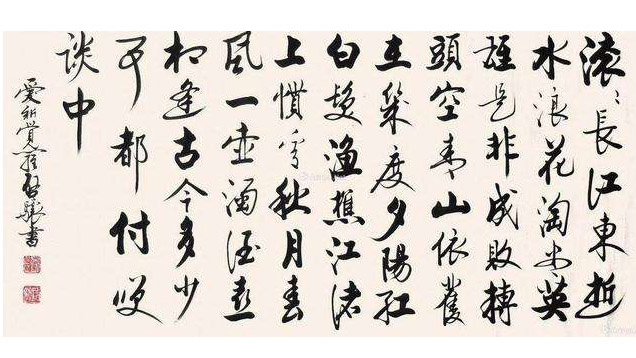 滚〻長江東逝
水浪花淘尽英
雄是非成敗轉
頭空青山依舊
在幾度夕陽紅
白髮漁樵江渚
上慣看秋月春
風一壺濁酒喜
相逢古今多少
事都付笑
談中
愛新覺羅啓驤書